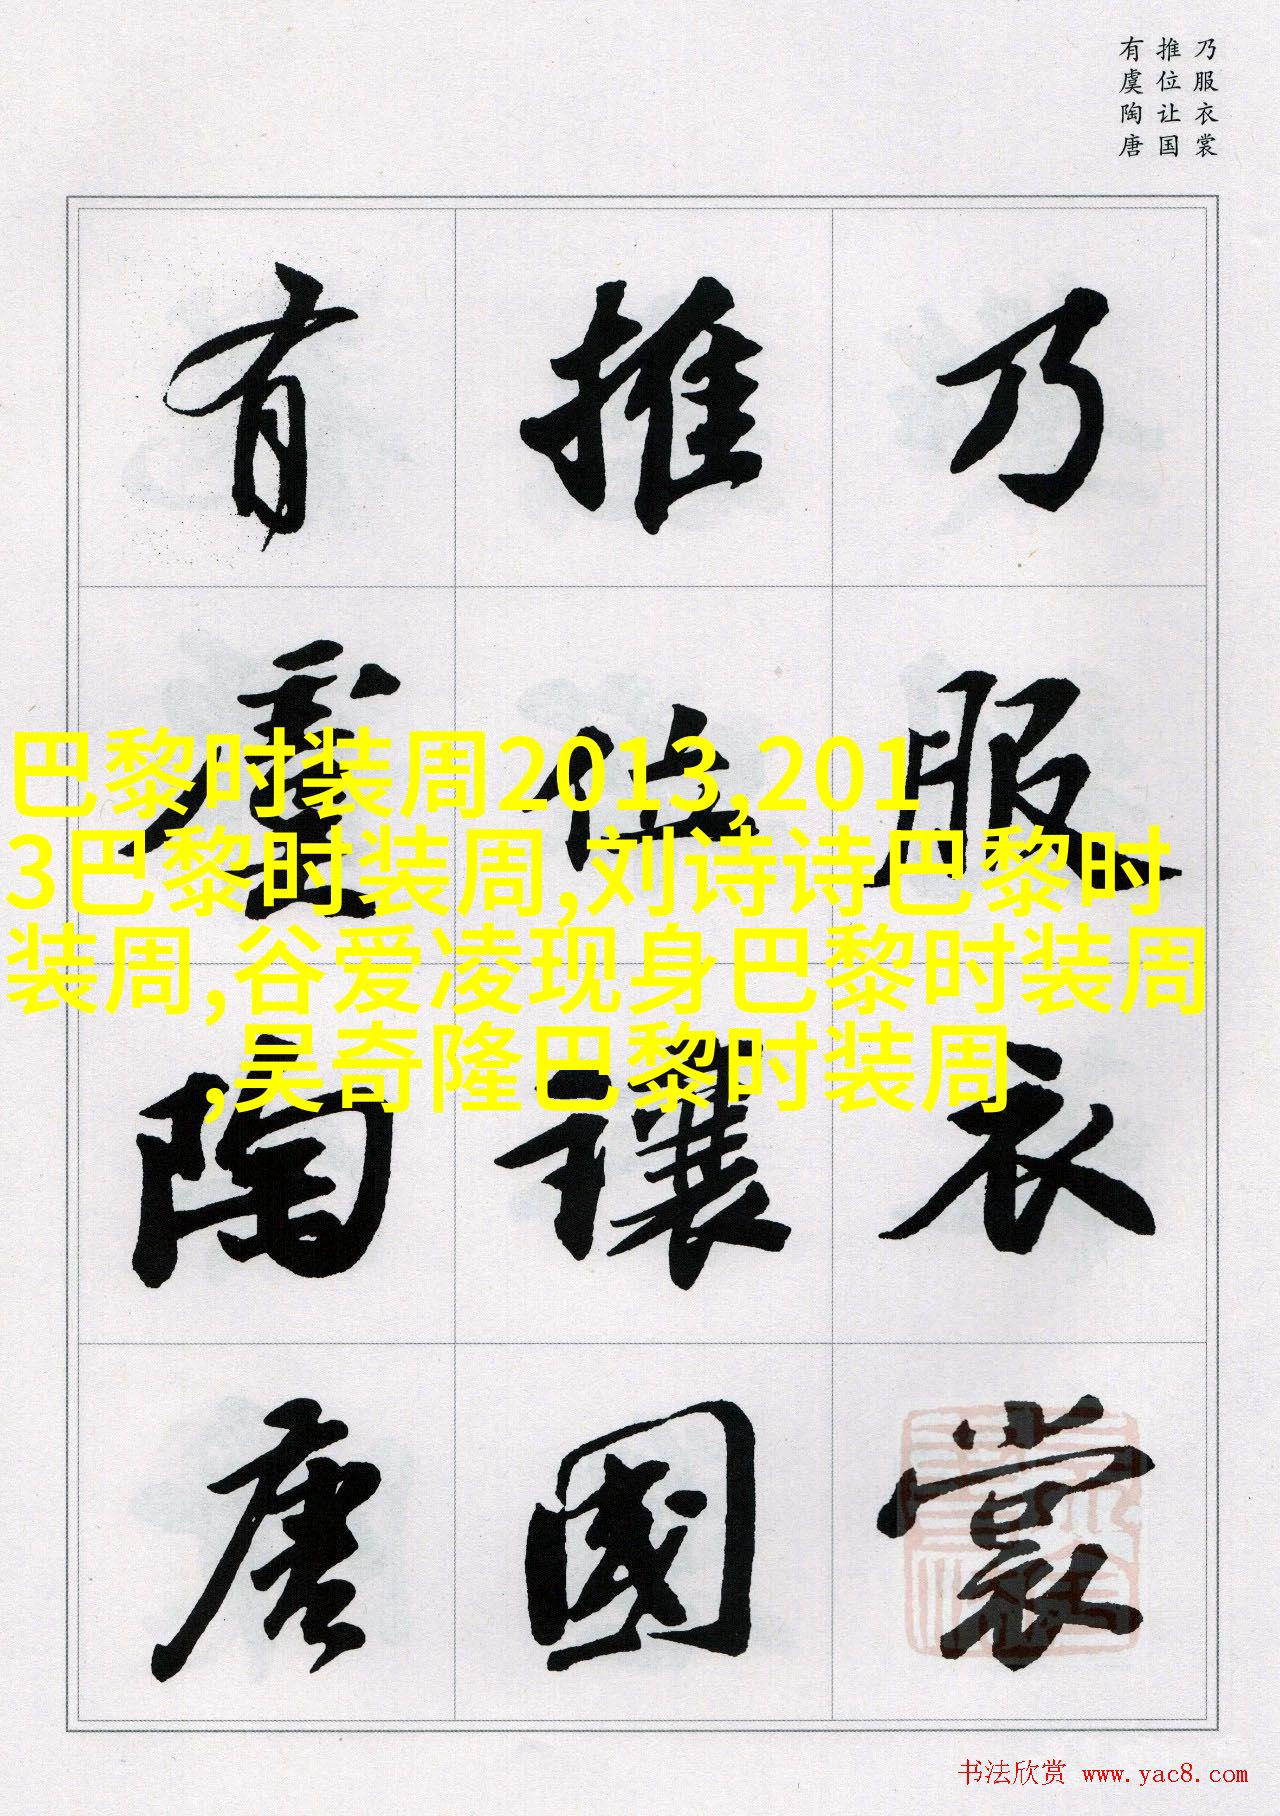 乃服衣裳
推位让国
有虞陶唐
乃服衣裳
推位讓國
有虞陶唐
巴黎时装周2013,201
3巴黎时装周,刘诗诗巴黎时
装周,谷爱凌现身巴黎时装周
,吴奇隆巴黎时装周
书法欣赏 www.yac8.com